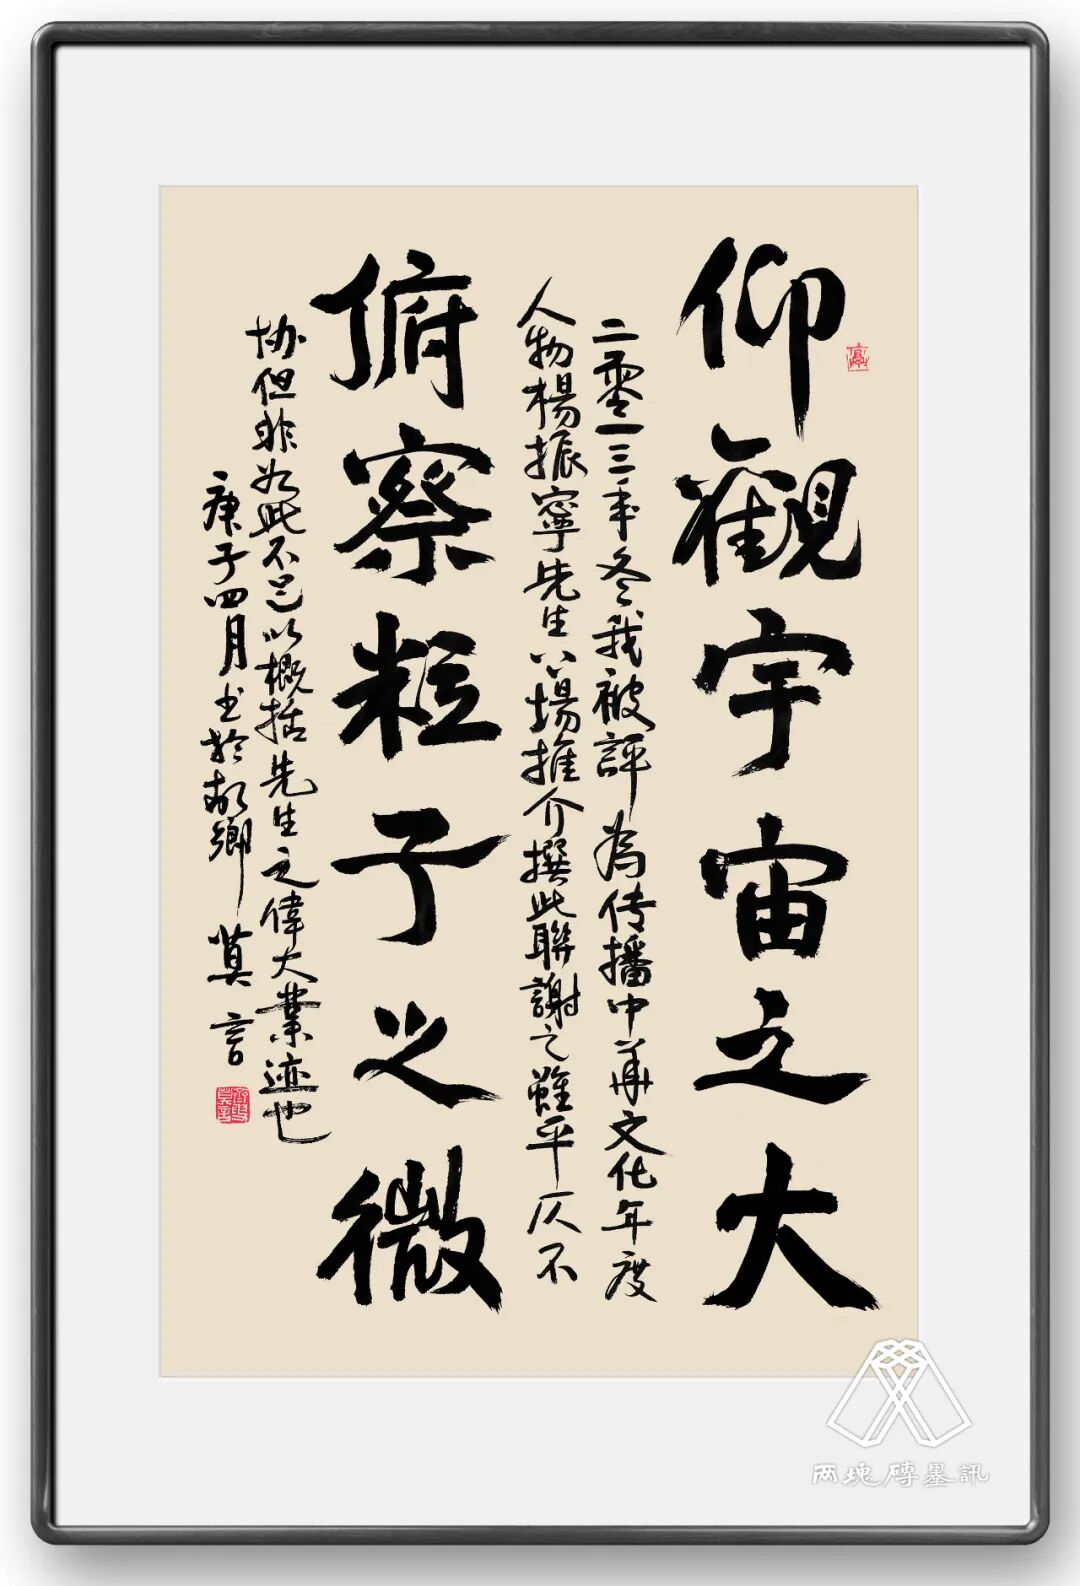 仰觀宇宙之大
二零一三年冬我被評為传播中華文化年度
人物楊振寧先生以場推介撰此聯謝之雖平仄不
俯察粒子之微
协但非如此不足以概括先生之偉大業迹也
庚子四月书於故鄉 莫言
两塊磚墨訊